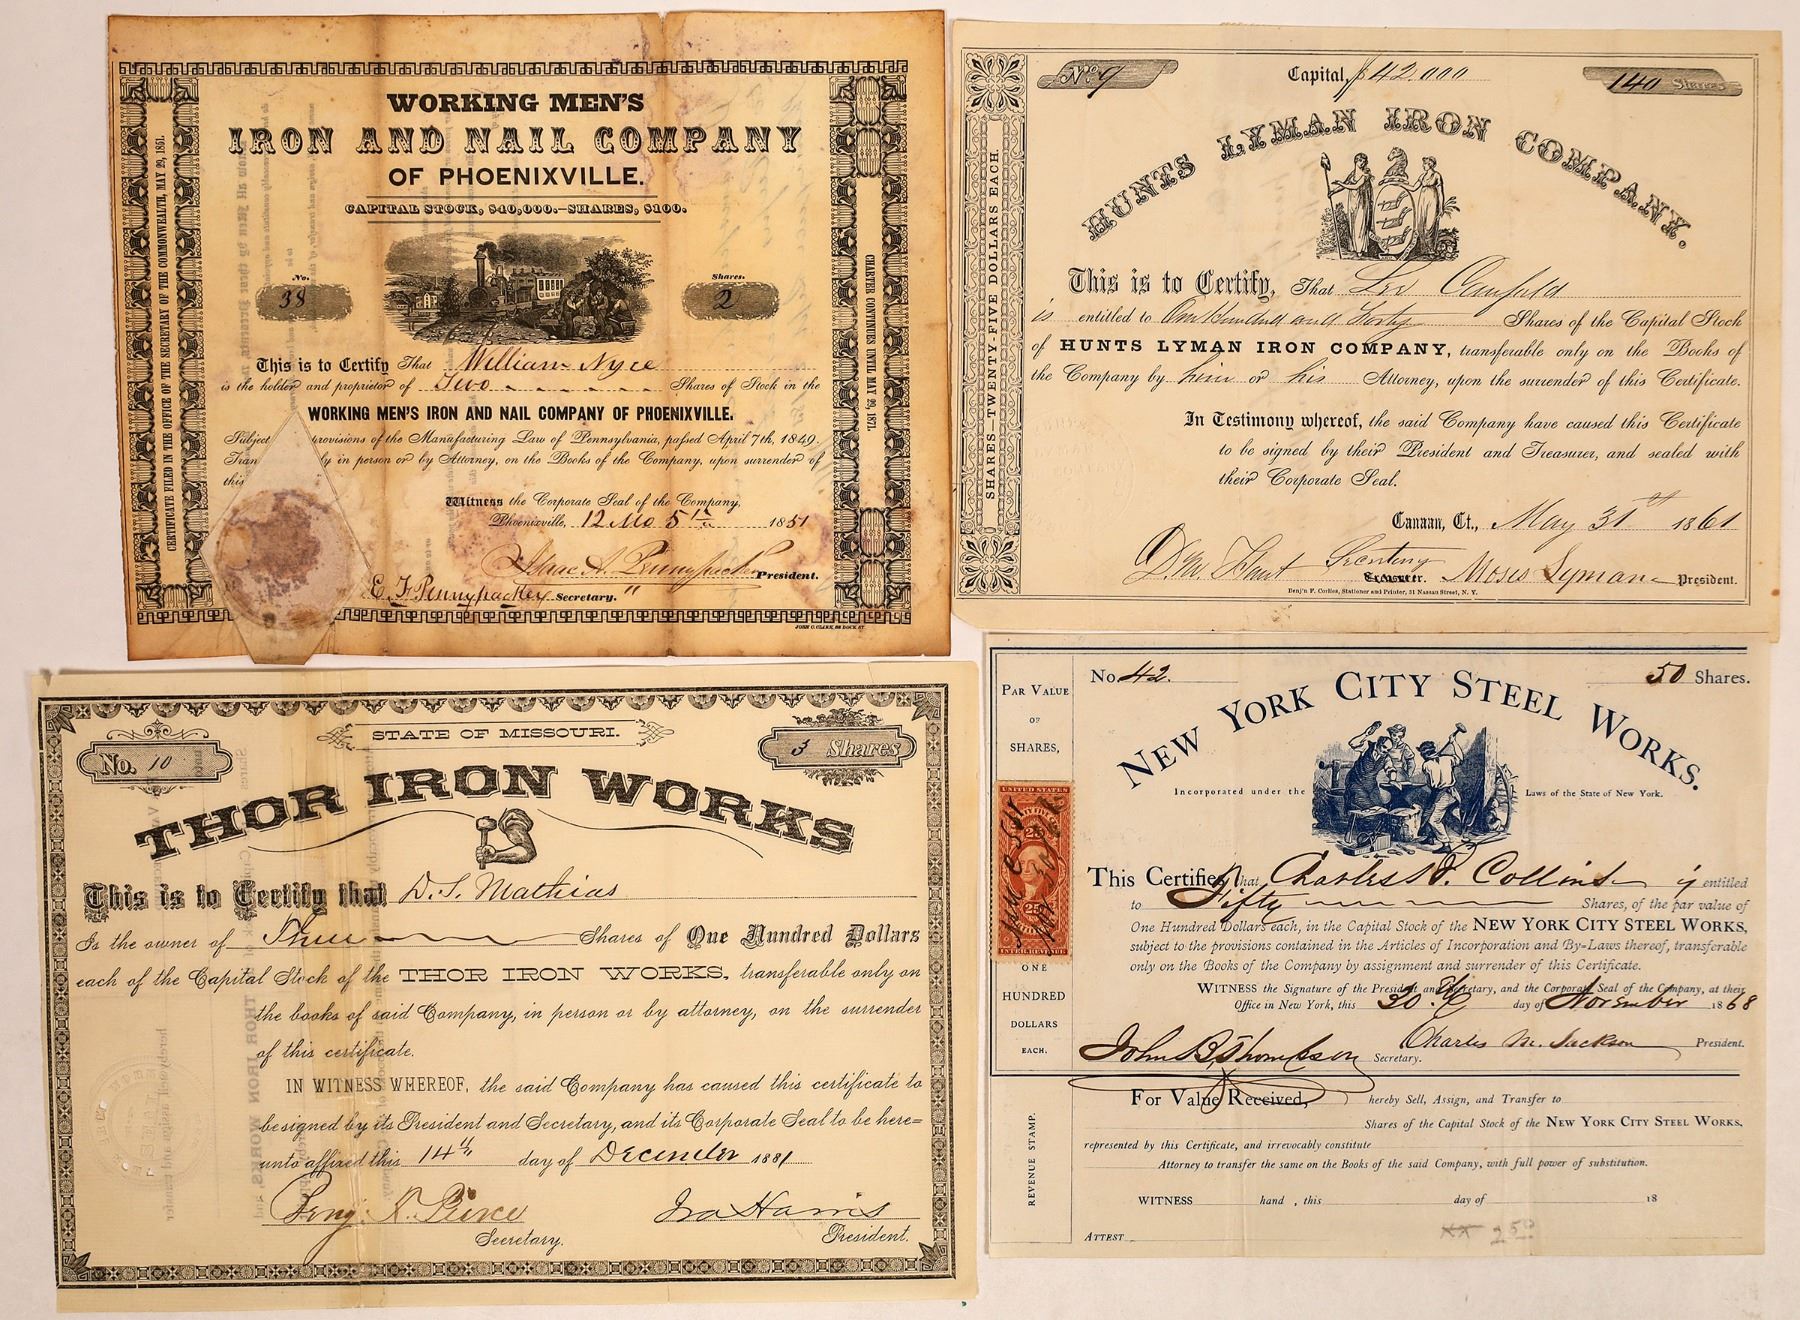 WORKING MEN'S
IRON AND NAIL COMPANY
OF PHOENIXVILLE.
CAPITAL STOCK, $40,000.—SHARES, $100.
CERTIFICATE FILED IN THE OFFICE OF THE SECRETARY OF THE COMMONWEALTH, MAY 29, 1851.
CHARTER CONTINUES UNTIL MAY 29, 1871.
No. Shares.
38 2
This is to Certify That William Nyce
is the holder and proprietor of Two Shares of Stock in the
WORKING MEN'S IRON AND NAIL COMPANY OF PHOENIXVILLE.
Subject provisions of the Manufacturing Law of Pennsylvania, passed April 7th, 1849.
Tran ly in person or by Attorney, on the Books of the Company, upon surrender of
this
Witness the Corporate Seal of the Company,
Phoenixville, 12 Mo 5th 1851
Isaac A. Pennypacker President.
E. F. Pennypacker Secretary.
JOHN C. CLARK, 68 DOCK ST.
No 9 Capital, $42.000 140 Shares
HUNTS LYMAN IRON COMPANY.
SHARES—TWENTY-FIVE DOLLARS EACH.
This is to Certify, That Lee Canfield
is entitled to One Hundred and Forty Shares of the Capital Stock
of HUNTS LYMAN IRON COMPANY, transferable only on the Books of
the Company by him or his Attorney, upon the surrender of this Certificate.
In Testimony whereof, the said Company have caused this Certificate
to be signed by their President and Treasurer, and sealed with
their Corporate Seal.
Canaan, Ct., May 31st 1861
Hunt Secretary Treasurer. Moses Lyman President.
Benj'n F. Corlies, Stationer and Printer, 31 Nassau Street, N. Y.
STATE OF MISSOURI.
No. 10 3 Shares
THOR IRON WORKS
This is to Certify that D. S. Mathias
Is the owner of Three Shares of One Hundred Dollars
each of the Capital Stock of the THOR IRON WORKS, transferable only on
the books of said Company, in person or by attorney, on the surrender
of this certificate.
IN WITNESS WHEREOF, the said Company has caused this certificate to
be signed by its President and Secretary, and its Corporate Seal to be here=
unto affixed this 14th day of December 1881
Benj. R. Pierce Ira Harris
Secretary. President.
No. 42. 50 Shares.
NEW YORK CITY STEEL WORKS.
Incorporated under the Laws of the State of New York.
PAR VALUE
OF
SHARES,
UNITED STATES
25 25
INTER. REVENUE
ONE
HUNDRED
DOLLARS
EACH.
This Certifies That Charles P. Collins is entitled
to Fifty Shares, of the par value of
One Hundred Dollars each, in the Capital Stock of the NEW YORK CITY STEEL WORKS,
subject to the provisions contained in the Articles of Incorporation and By-Laws thereof, transferable
only on the Books of the Company by assignment and surrender of this Certificate.
WITNESS the Signature of the President and Secretary, and the Corporate Seal of the Company, at their
Office in New York, this 30th day of November 1868
John B. Thompson Secretary. Charles M. Jackson President.
For Value Received, hereby Sell, Assign, and Transfer to
Shares of the Capital Stock of the NEW YORK CITY STEEL WORKS,
represented by this Certificate, and irrevocably constitute
Attorney to transfer the same on the Books of the said Company, with full power of substitution.
REVENUE STAMP.
WITNESS hand , this day of 18
XX 250
ATTEST